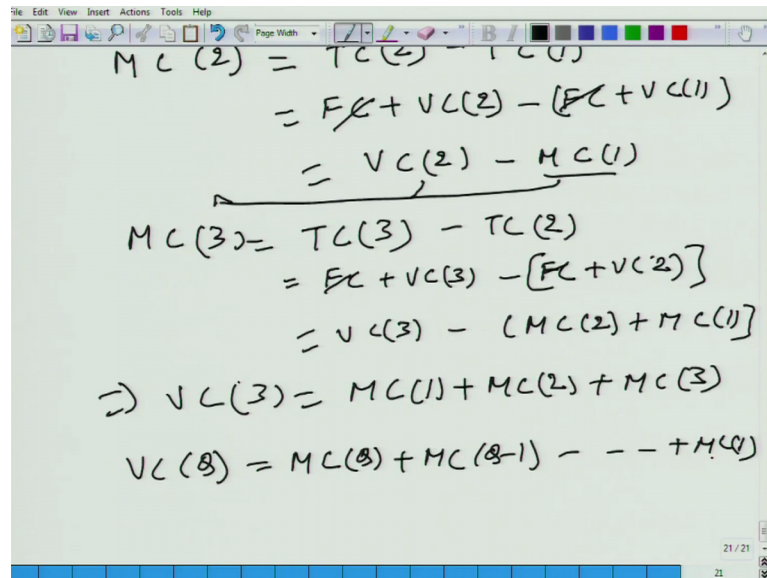 File Edit View Insert Actions Tools Help
Page Width
MC (2) = TC(2) - TC(1)
= FC + VC(2) - (FC + VC(1))
= VC(2) - MC(1)
MC(3) = TC(3) - TC(2)
= FC + VC(3) - [FC + VC(2)]
= VC(3) - (MC(2) + MC(1)]
=) VC(3) = MC(1) + MC(2) + MC(3)
VC(8) = MC(8) + MC(8-1) - - - - + MC(1)
21 / 21
21